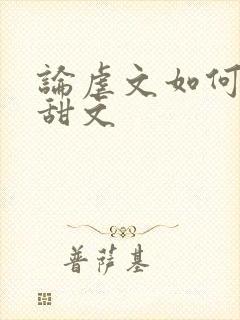 論虐文如何
甜文
普薩基